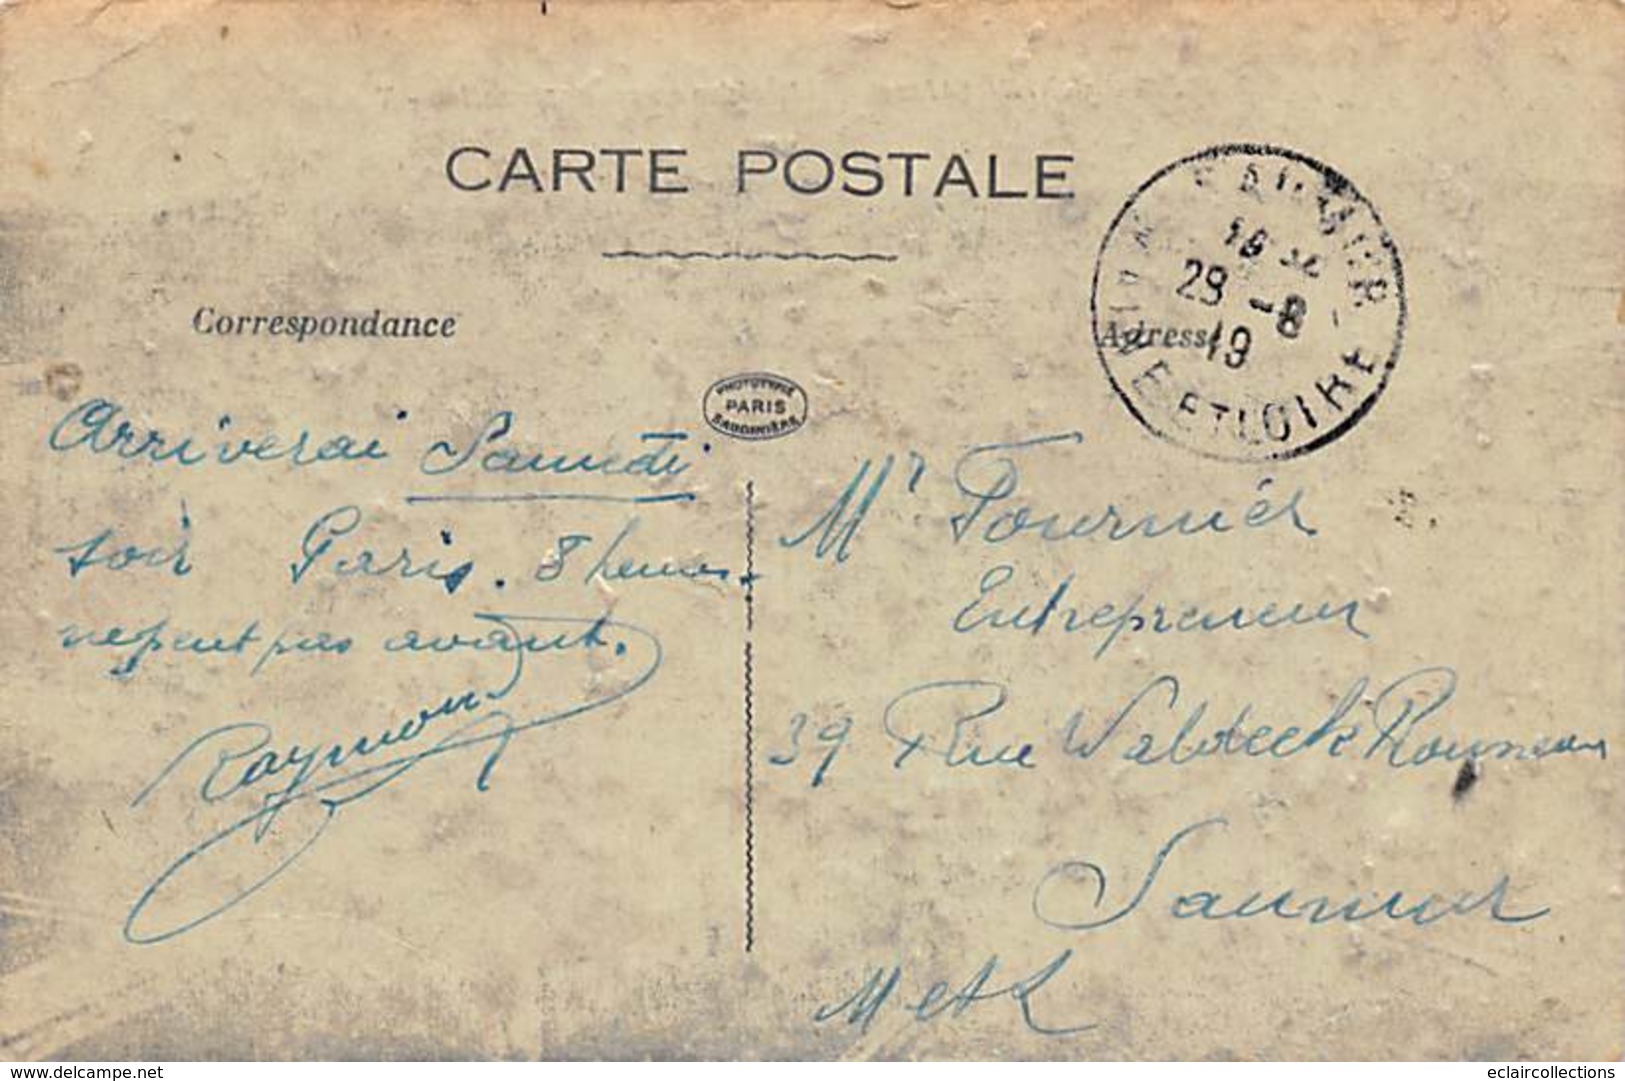 CARTE POSTALE
SAUMUR
18 30
29 -8
19
MAINE ET LOIRE
Correspondance
Adresse
PHOTOTYPIE
PARIS
BAUDINIÈRE
Arriverai Samedi
soir Paris. 8 heures.
ne peut pas avant.
Raymond
Mr Fournier
Entrepreneur
39 Rue Waldeck Rousseau
Saumur
M et L
delcampe.net
eclaircollections